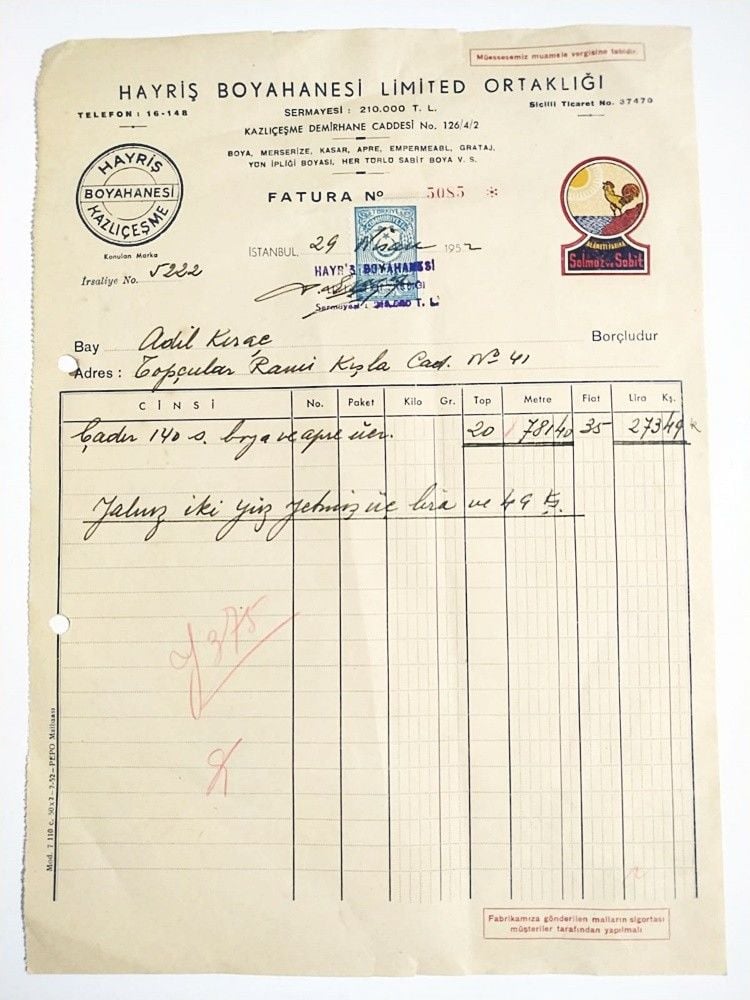 Müessesemiz muamele vergisine tabidir.
HAYRİŞ BOYAHANESİ LİMİTED ORTAKLIĞI
TELEFON : 16-148
SERMAYESİ : 210.000 T. L.
Sicilli Ticaret No. 37479
KAZLIÇEŞME DEMİRHANE CADDESİ No. 126/4/2
BOYA, MERSERİZE, KASAR, APRE, EMPERMEABL, GRATAJ,
YÜN İPLİĞİ BOYASI, HER TÜRLÜ SABİT BOYA V. S.
HAYRİŞ
BOYAHANESİ
KAZLIÇEŞME
Konulan Marka
FATURA No 5085 *
ALÂMETİ FARİKA
Solmaz ve Sabit
TÜRKİYE
CUMHURİYETİ
İSTANBUL, 29 Nisan 1952
HAYRİŞ BOYAHANESİ
Sermayesi : 210.000 T. L.
İrsaliye No. 5222
Bay Adil Kıraç Borçludur
Adres : Topçular Rami Kışla Cad. No 41
CİNSİ No. Paket Kilo Gr. Top Metre Fiat Lira Kş.
Çadır 140 s. boya ve apre ücr. 20 781 40 35 273 49
Yalnız iki yüz yetmiş üç lira ve 49 Kş.
375
Mod. 7 110 c. 50x2-7-52-PEPO Matbaası
Fabrikamıza gönderilen malların sigortası
müşteriler tarafından yapılmalı